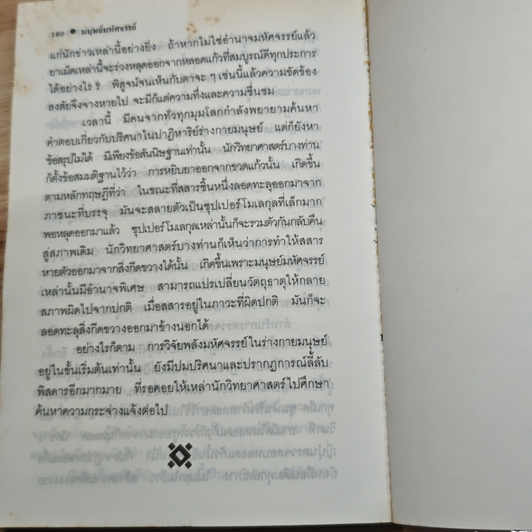 ๖๐๐ ● มนุษย์มหัศจรรย์
แก่นักข่าวเหล่านี้อย่างยิ่ง ถ้าหากไม่ใช่อำนาจมหัศจรรย์แล้ว
ยาเม็ดเหล่านี้จะร่วงหลุดออกจากหลอดแก้วที่สมบูรณ์ดีทุกประการ
ได้อย่างไร ? พิสูจน์จนเห็นกับตาจะ ๆ เช่นนี้แล้วความขัดข้อง
สงสัยจึงจางหายไป จะมีก็แต่ความทึ่งและความชื่นชม
เวลานี้ มีคนจากทั่วทุกมุมโลกกำลังพยายามค้นหา
คำตอบเกี่ยวกับปริศนาในปาฏิหาริย์ร่างกายมนุษย์ แต่ก็ยังหา
ข้อสรุปไม่ได้ มีเพียงข้อสันนิษฐานเท่านั้น นักวิทยาศาสตร์บางท่าน
ก็ตั้งข้อสมมติฐานไว้ว่า การหยิบยาออกจากขวดแก้วนั้น เกิดขึ้น
ตามหลักทฤษฎีที่ว่า ในขณะที่สสารชิ้นหนึ่งลอดทะลุออกมาจาก
ภาชนะที่บรรจุ มันจะสลายตัวเป็นซุปเปอร์โมเลกุลที่เล็กมาก
พอหลุดออกมาแล้ว ซุปเปอร์โมเลกุลเหล่านั้นก็จะรวมตัวกันกลับคืน
สู่สภาพเดิม นักวิทยาศาสตร์บางท่านก็เห็นว่าการทำให้สสาร
หายตัวออกมาจากสิ่งกีดขวางได้นั้น เกิดขึ้นเพราะมนุษย์มหัศจรรย์
เหล่านั้นมีอำนาจพิเศษ สามารถแปรเปลี่ยนวัตถุธาตุให้กลาย
สภาพผิดไปจากปกติ เมื่อสสารอยู่ในภาวะที่ผิดปกติ มันก็จะ
ลอดทะลุสิ่งกีดขวางออกมาข้างนอกได้
อย่างไรก็ตาม การวิจัยพลังมหัศจรรย์ในร่างกายมนุษย์
อยู่ในขั้นเริ่มต้นเท่านั้น ยังมีปมปริศนาและปรากฏการณ์ลี้ลับ
พิสดารอีกมากมาย ที่รอคอยให้เหล่านักวิทยาศาสตร์ไปศึกษา
ค้นหาความกระจ่างแจ้งต่อไป